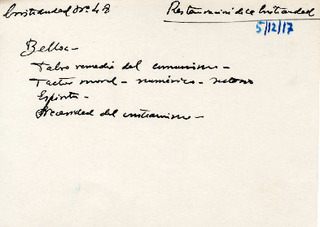 Cristiandad Nº 48
Restauración de la Cristiandad
5/12/17
Belloc -
Falso remedio del comunismo -
Factor moral - numérico -
Espíritu -
Necesidad del cristianismo -